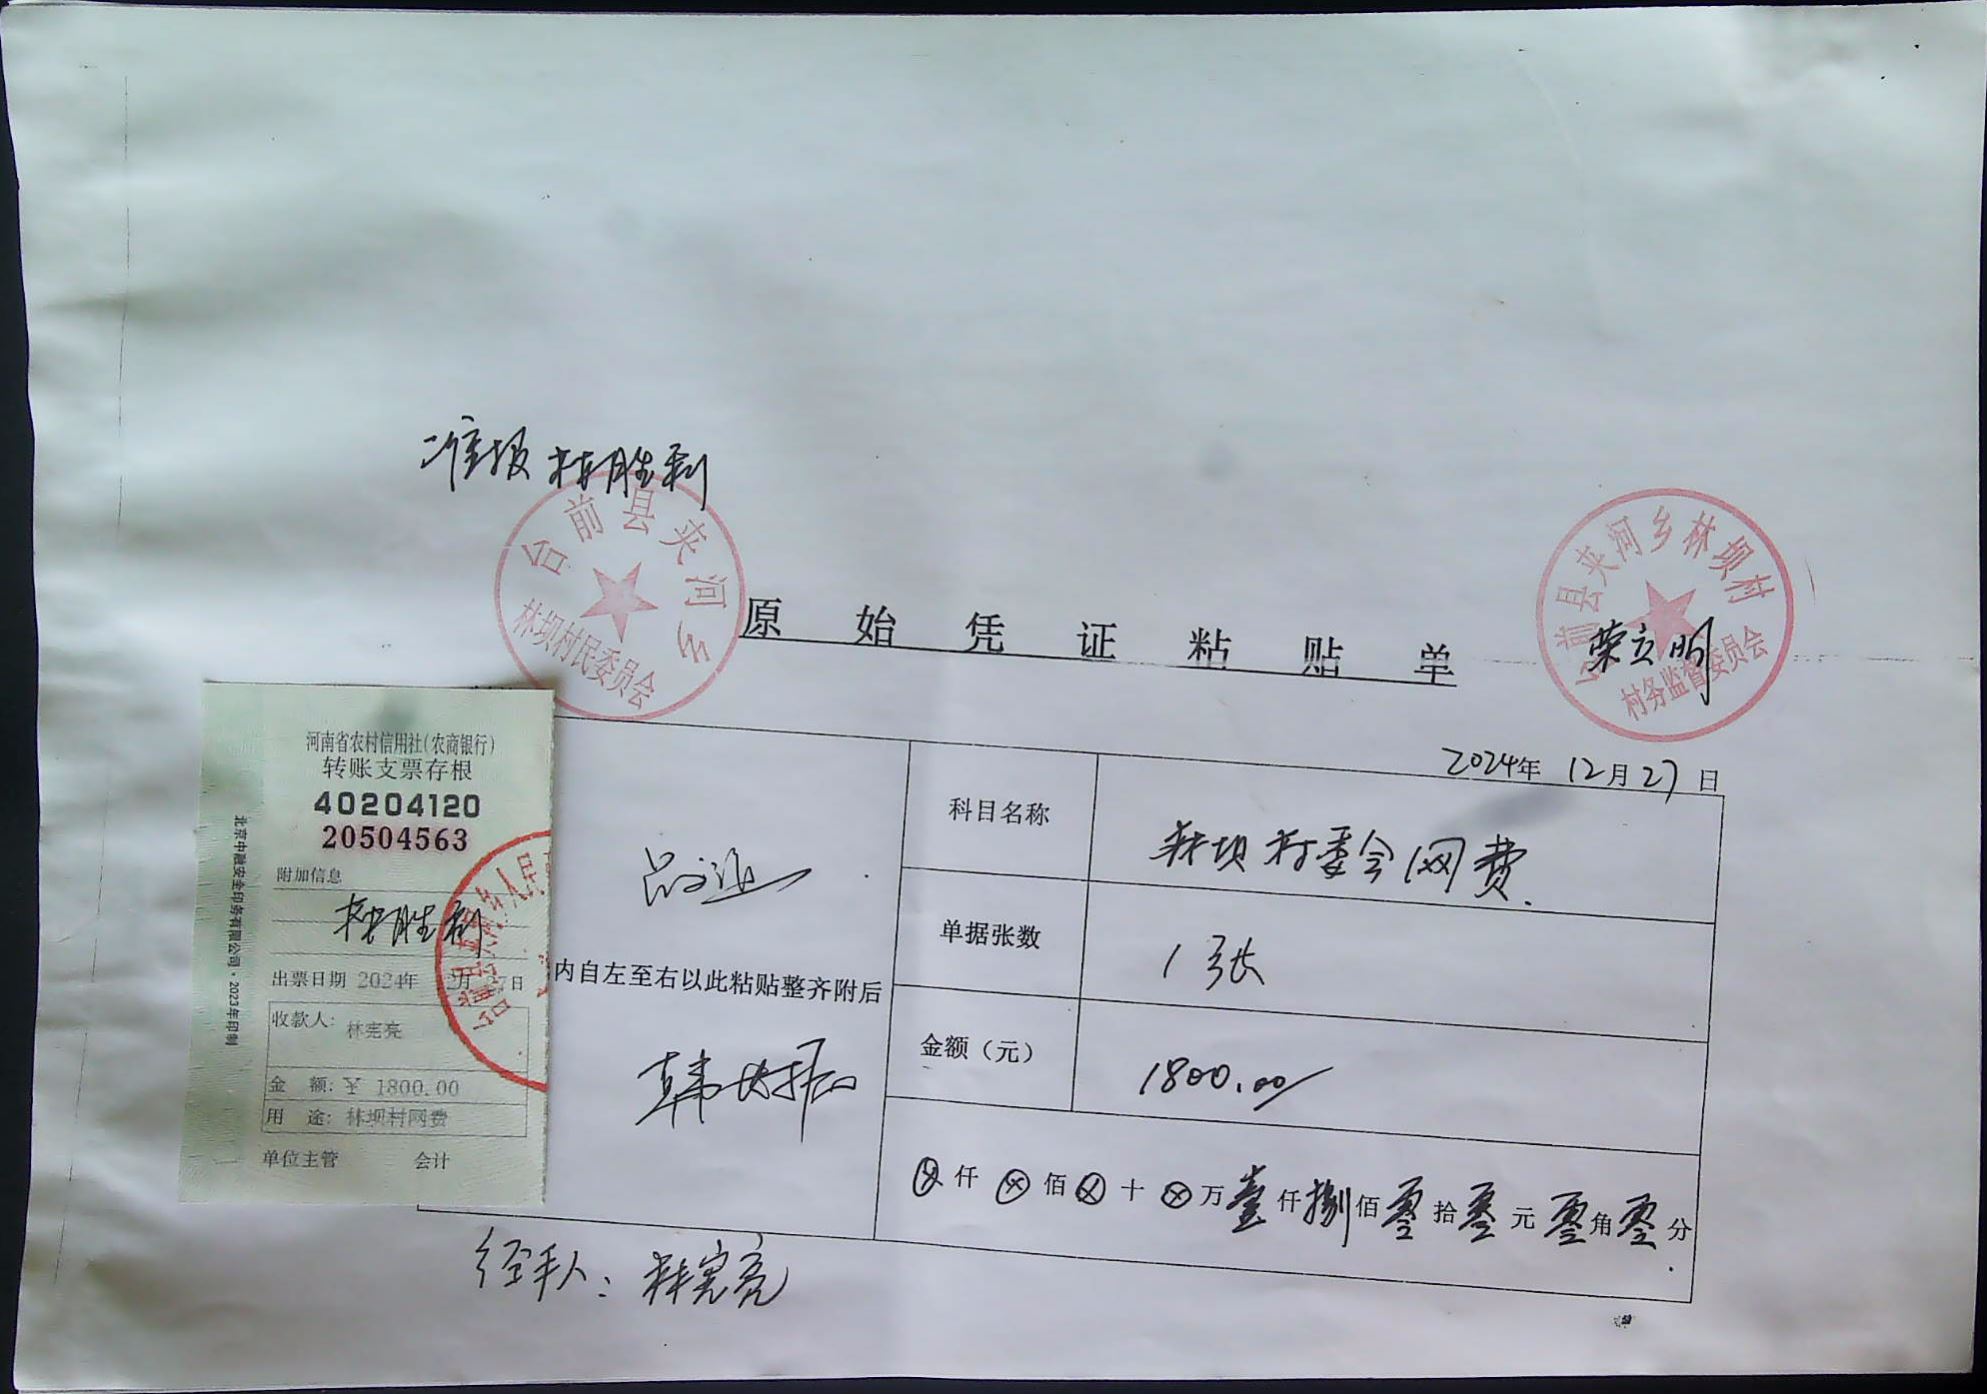 准报 林胜利
台前县夹河乡
林坝村民委员会
台前县夹河乡林坝村
村务监督委员会
荣立明
原始凭证粘贴单
2024年 12月27日
河南省农村信用社(农商银行)
转账支票存根
40204120
20504563
附加信息
林胜利
出票日期 2024年 12月 27日
收款人: 林宪亮
金 额: ¥ 1800.00
用 途: 林坝村网费
单位主管 会计
北京中融安全印务有限公司·2023年印制
内自左至右以此粘贴整齐附后
科目名称 林坝村委会网费.
单据张数 1张
金额（元） 1800.00
ⓧ仟ⓧ佰ⓧ十ⓧ万壹仟捌佰零拾零元零角零分
经手人: 林宪亮